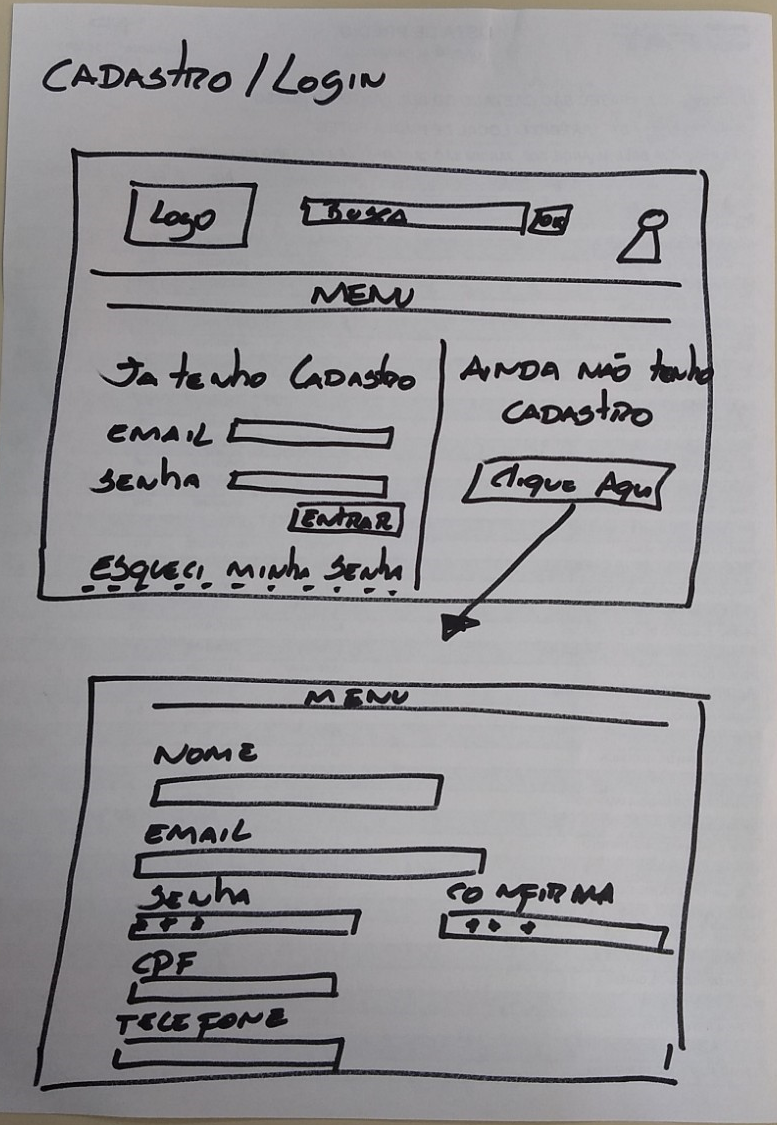 CADASTRO / LOGIN
Logo
BUSCA
OK
MENU
Ja tenho CADASTRO
EMAIL
SENHA
ENTRAR
ESQUECI MINHA SENHA
AINDA NÃO tenho
CADASTRO
Clique Aqui
MENU
NOME
EMAIL
SENHA
CONFIRMA
CPF
TELEFONE